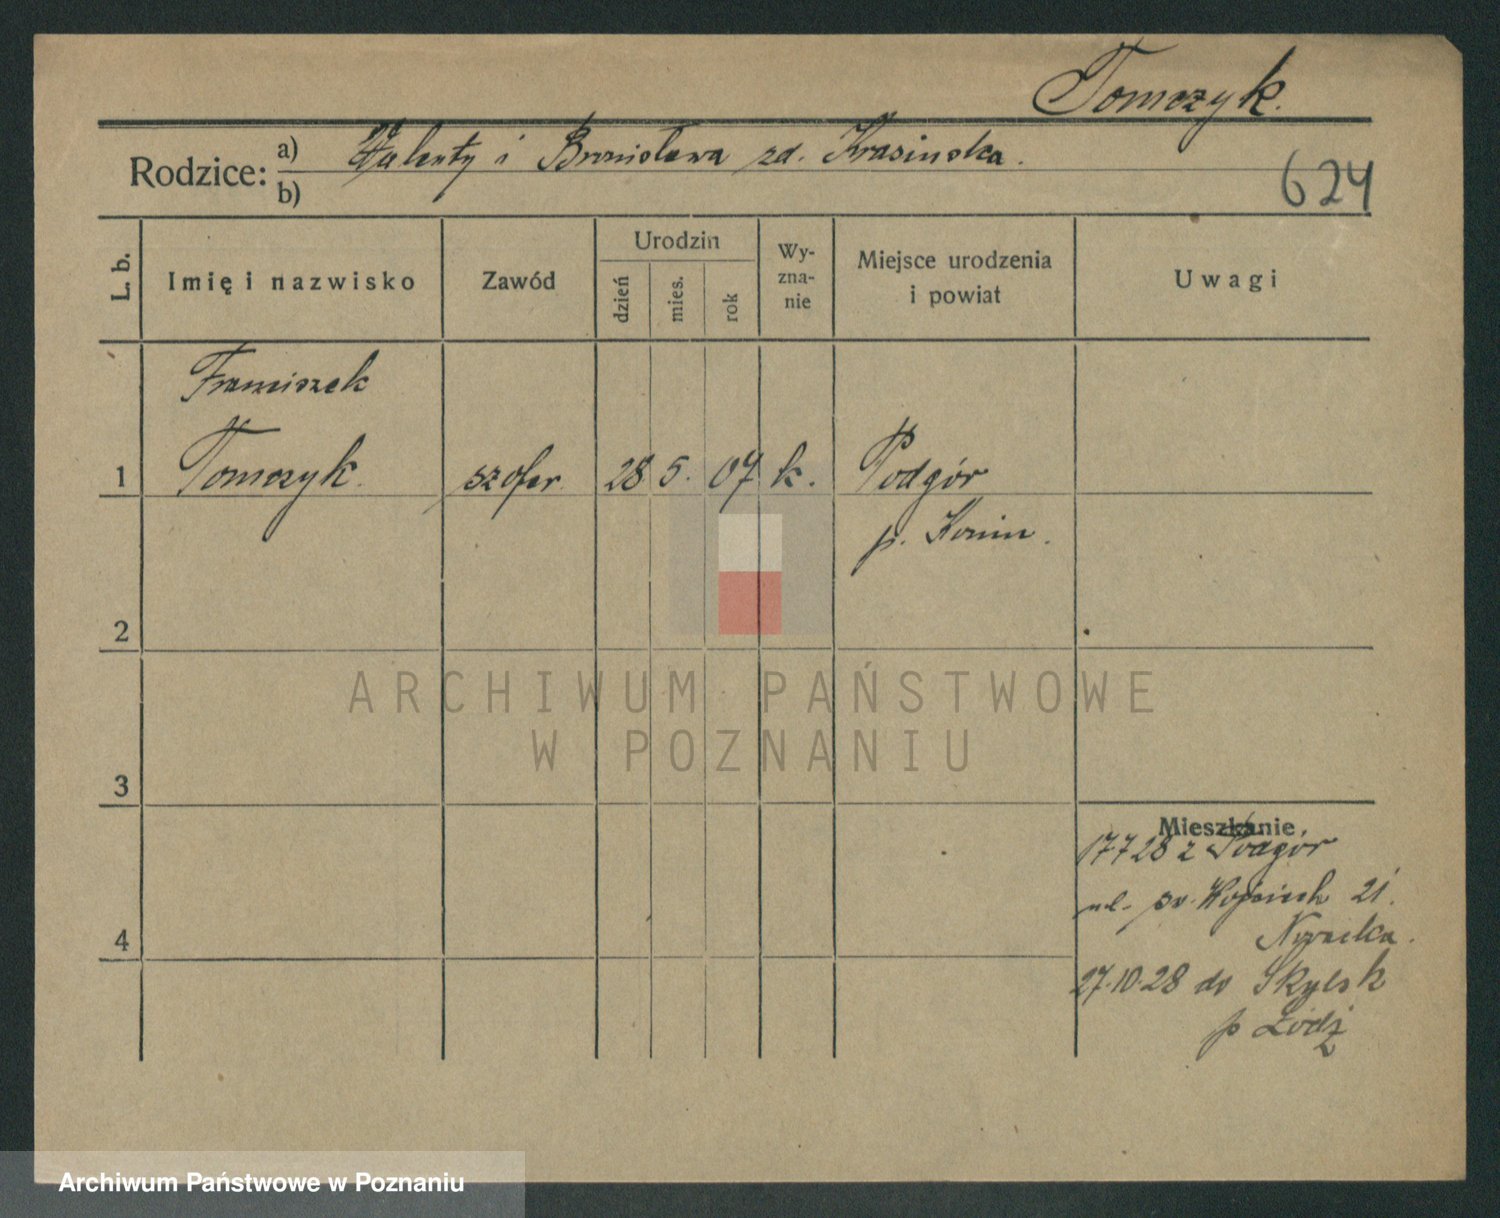 Tomczyk.
Rodzice: a) Walenty i Bronisława zd. Krasińska.
b)
624
L. b.
Imię i nazwisko
Zawód
Urodzin
dzień
mies.
rok
Wy-
zna-
nie
Miejsce urodzenia
i powiat
Uwagi
Franciszek
1 Tomczyk. szofer 28 5. 07 k. Podgór
p. Konin.
2
3
4
Mieszkanie
17 7 28 z Podgór
ul. św. Wojciech 21.
27.10.28 do Skulsk
p Łódź
ARCHIWUM PAŃSTWOWE
W POZNANIU
Archiwum Państwowe w Poznaniu